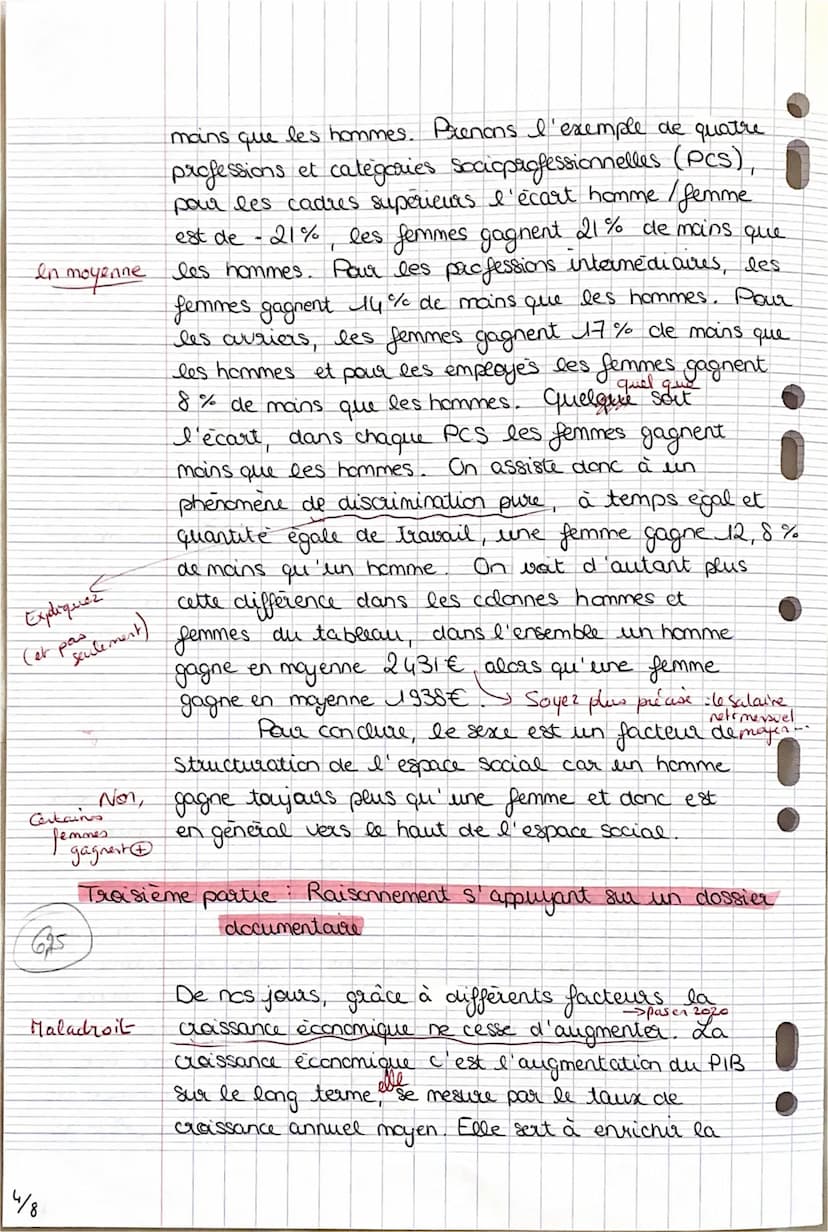 moins que les hommes. Prenons l'exemple de quatre
professions et catégories socioprofessionnelles (PCS),
pour les cadres supérieurs l'écart homme / femme
est de - 21 %, les femmes gagnent 21 % de moins que
en moyenne
les hommes. Pour les professions intermédiaires, les
femmes gagnent 14 % de moins que les hommes. Pour
les ouvriers, les femmes gagnent 17 % de moins que
les hommes et pour les employés les femmes gagnent
quel que
8 % de moins que les hommes. Quelque soit
l'écart, dans chaque PCS les femmes gagnent
moins que les hommes. On assiste donc à un
phénomène de discrimination pure, à temps égal et
quantité égale de travail, une femme gagne 12,8 %
de moins qu'un homme. On voit d'autant plus
Expliquez
(et pas seulement)
cette différence dans les colonnes hommes et
femmes du tableau, dans l'ensemble un homme
gagne en moyenne 2431€, alors qu'une femme
gagne en moyenne 1938€. → Soyez plus précise : le salaire
net mensuel
moyen
Pour conclure, le sexe est un facteur de
structuration de l'espace social car un homme
Non,
certaines
femmes
gagnent ⊕
gagne toujours plus qu'une femme et donc est
en général vers le haut de l'espace social.
Troisième partie : Raisonnement s'appuyant sur un dossier
documentaire
6,25
De nos jours, grâce à différents facteurs la
→ pas en 2020
Maladroit
croissance économique ne cesse d'augmenter. La
croissance économique c'est l'augmentation du PIB
elle
sur le long terme, se mesure par le taux de
croissance annuel moyen. Elle sert à enrichir la
4/8